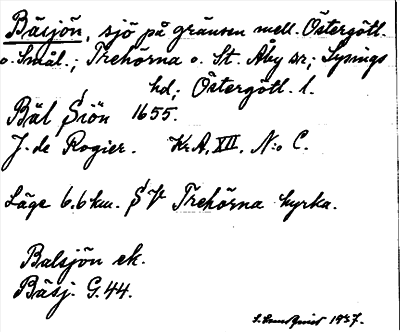 Bäsjön, sjö på gränsen mell. Östergötl.
o. Smål.; Trehörna o. St. Åby sr; Lysings
hd; Östergötl. l.
Bäl Siön 1655.
J. de Rogier. Kr.A. XII. N:o C.
Läge 6.6 km. SV Trehörna kyrka.
Balsjön ek.
Bäsj. G.44.
S. Lundquist 1937.